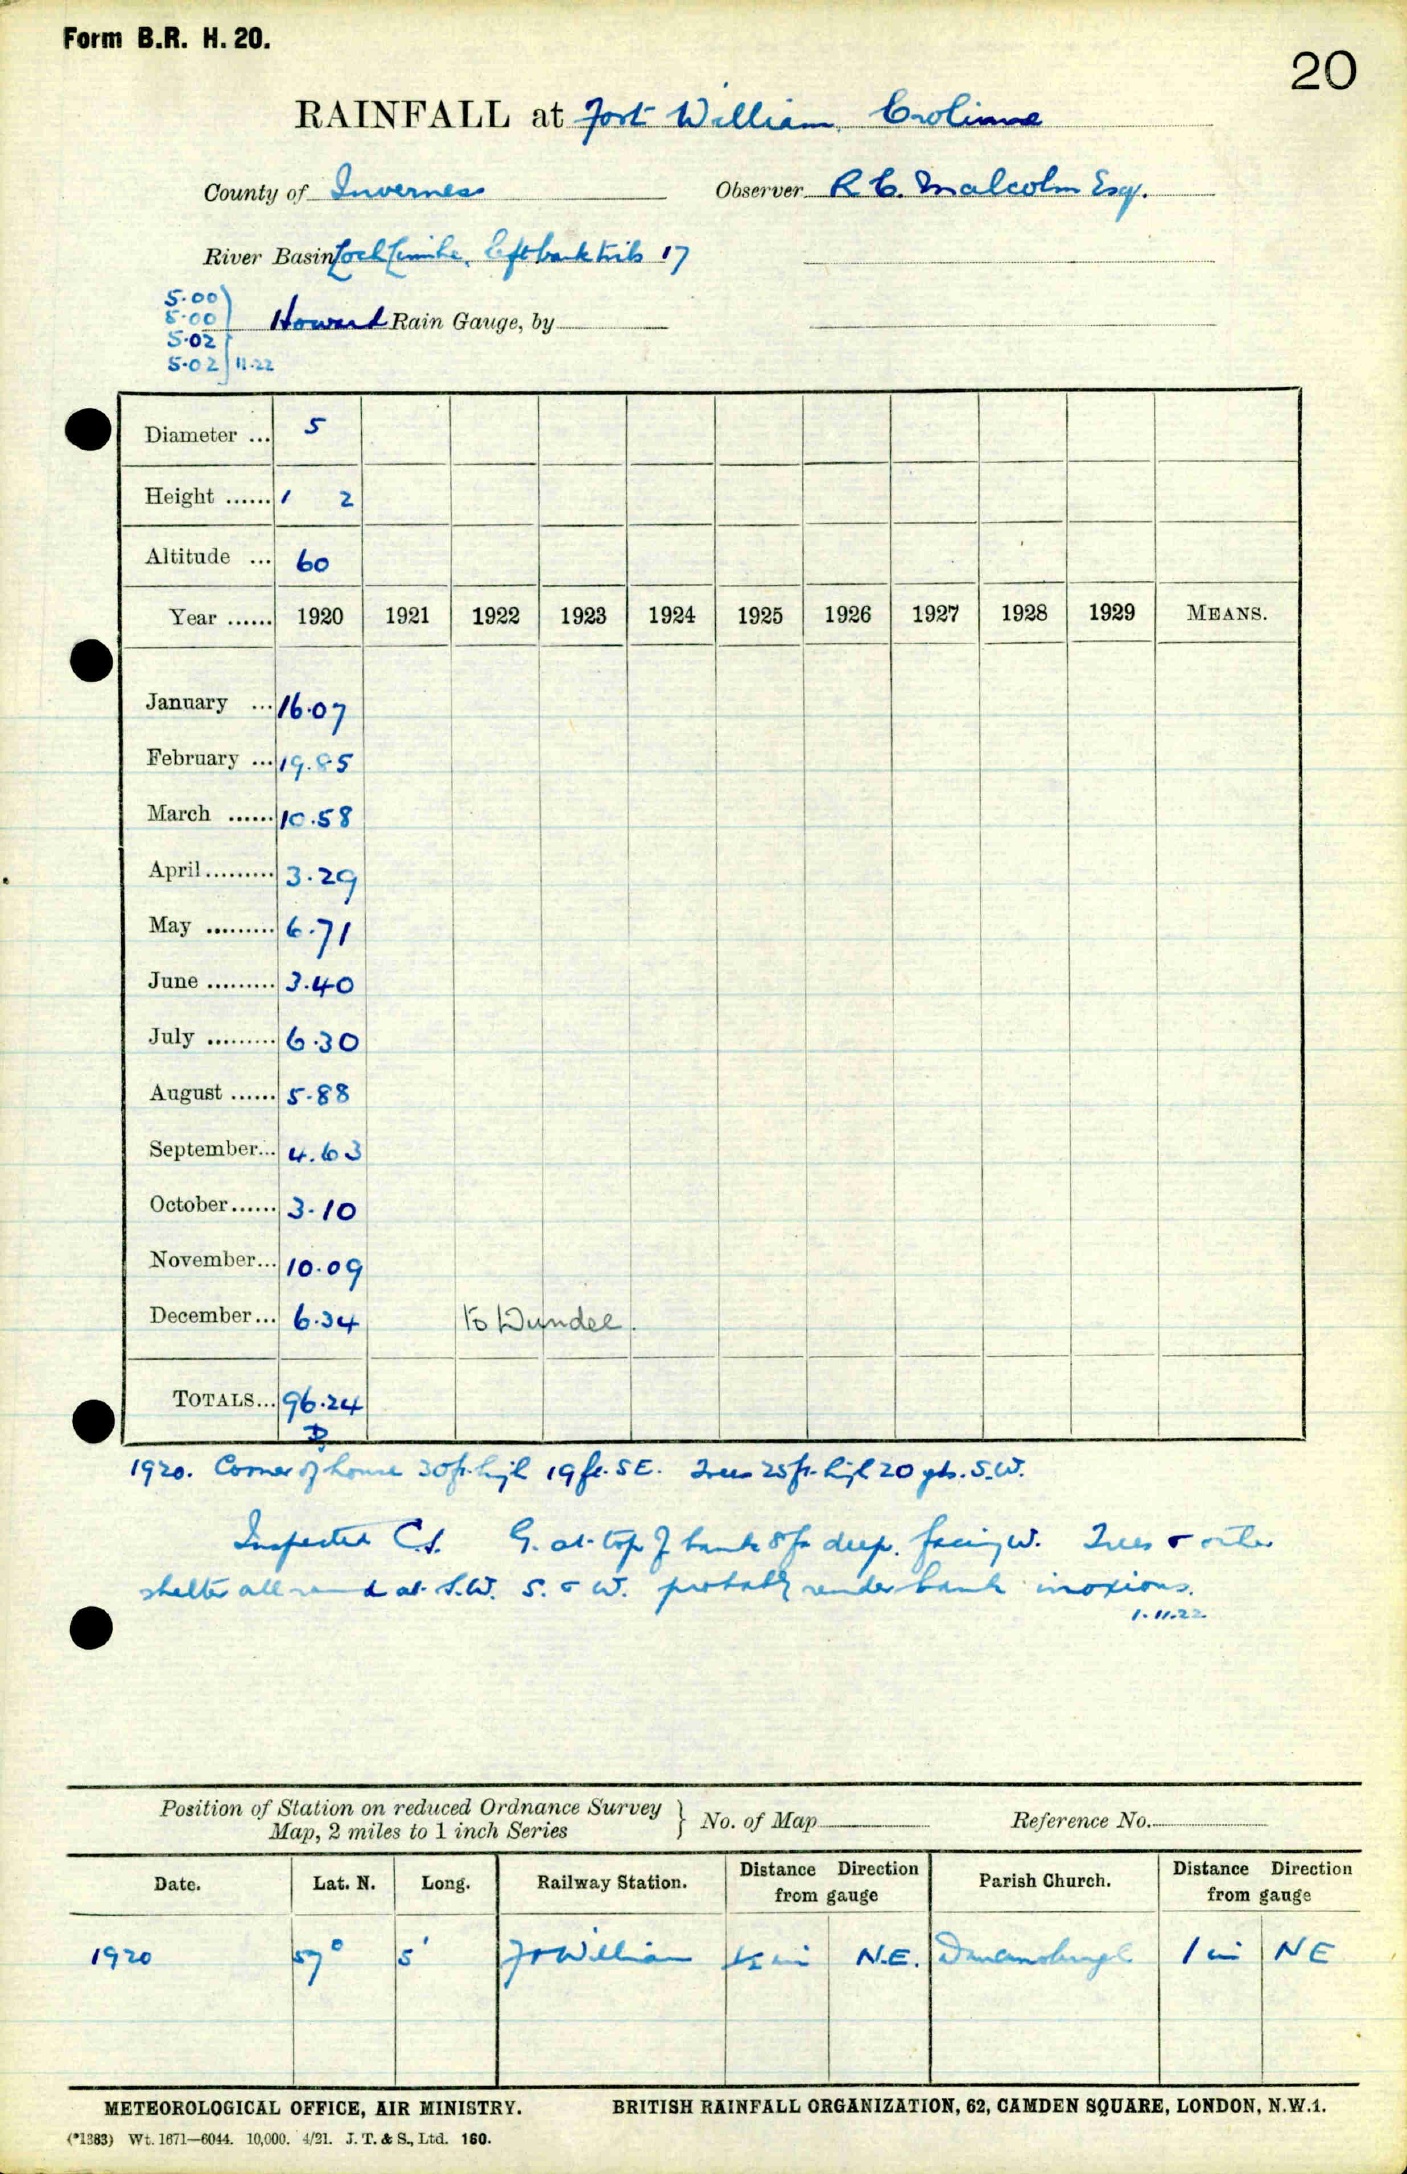 Form B.R. H. 20.
20
RAINFALL at Fort William, Crolinne
County of Inverness Observer R C. Malcolm Esq.
River Basin Loch Linnhe, left bank tribs 17
5.00
5.00
5.02
5.02 11.22
Howard Rain Gauge, by
Diameter ... 5
Height ...... 1 2
Altitude ... 60
Year ...... 1920 1921 1922 1923 1924 1925 1926 1927 1928 1929 MEANS.
January ... 16.07
February ... 19.85
March ...... 10.58
April ......... 3.29
May ......... 6.71
June ......... 3.40
July ......... 6.30
August ...... 5.88
September... 4.63
October ...... 3.10
November... 10.09
December... 6.34 To Dundee.
TOTALS... 96.24
D
1920. Corner of house 30 ft. high 19 ft. SE. Trees 25 ft. high 20 yds. S.W.
Inspected C.S. G. at top of bank 8 ft deep. facing W. Trees & other
shelter all round at S.W. S. & W. probably render bank inoxious.
1.11.22
Position of Station on reduced Ordnance Survey
Map, 2 miles to 1 inch Series } No. of Map Reference No.
Date. Lat. N. Long. Railway Station. Distance Direction from gauge Parish Church. Distance Direction from gauge
1920 57° 5' Ft William ½ mi N.E. Duncansburgh 1 mi NE
METEOROLOGICAL OFFICE, AIR MINISTRY. BRITISH RAINFALL ORGANIZATION, 62, CAMDEN SQUARE, LONDON, N.W.1.
(*1383) Wt. 1671—6044. 10,000. 4/21. J. T. & S., Ltd. 160.